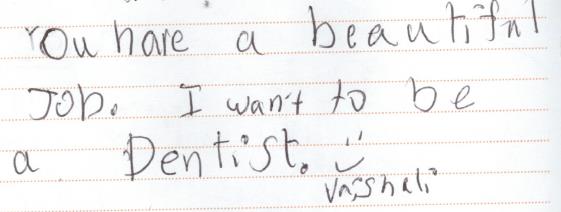 You have a beautiful
Job. I want to be
a Dentist.
Vaishali